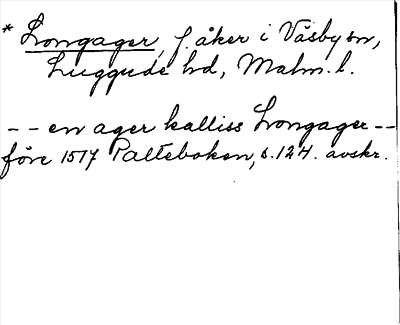 * Longager, f. åker i Väsby sn,
Luggude hd, Malm. l.
-- en ager kalliss Longager --
före 1517 Palteboken, s. 124. avskr.